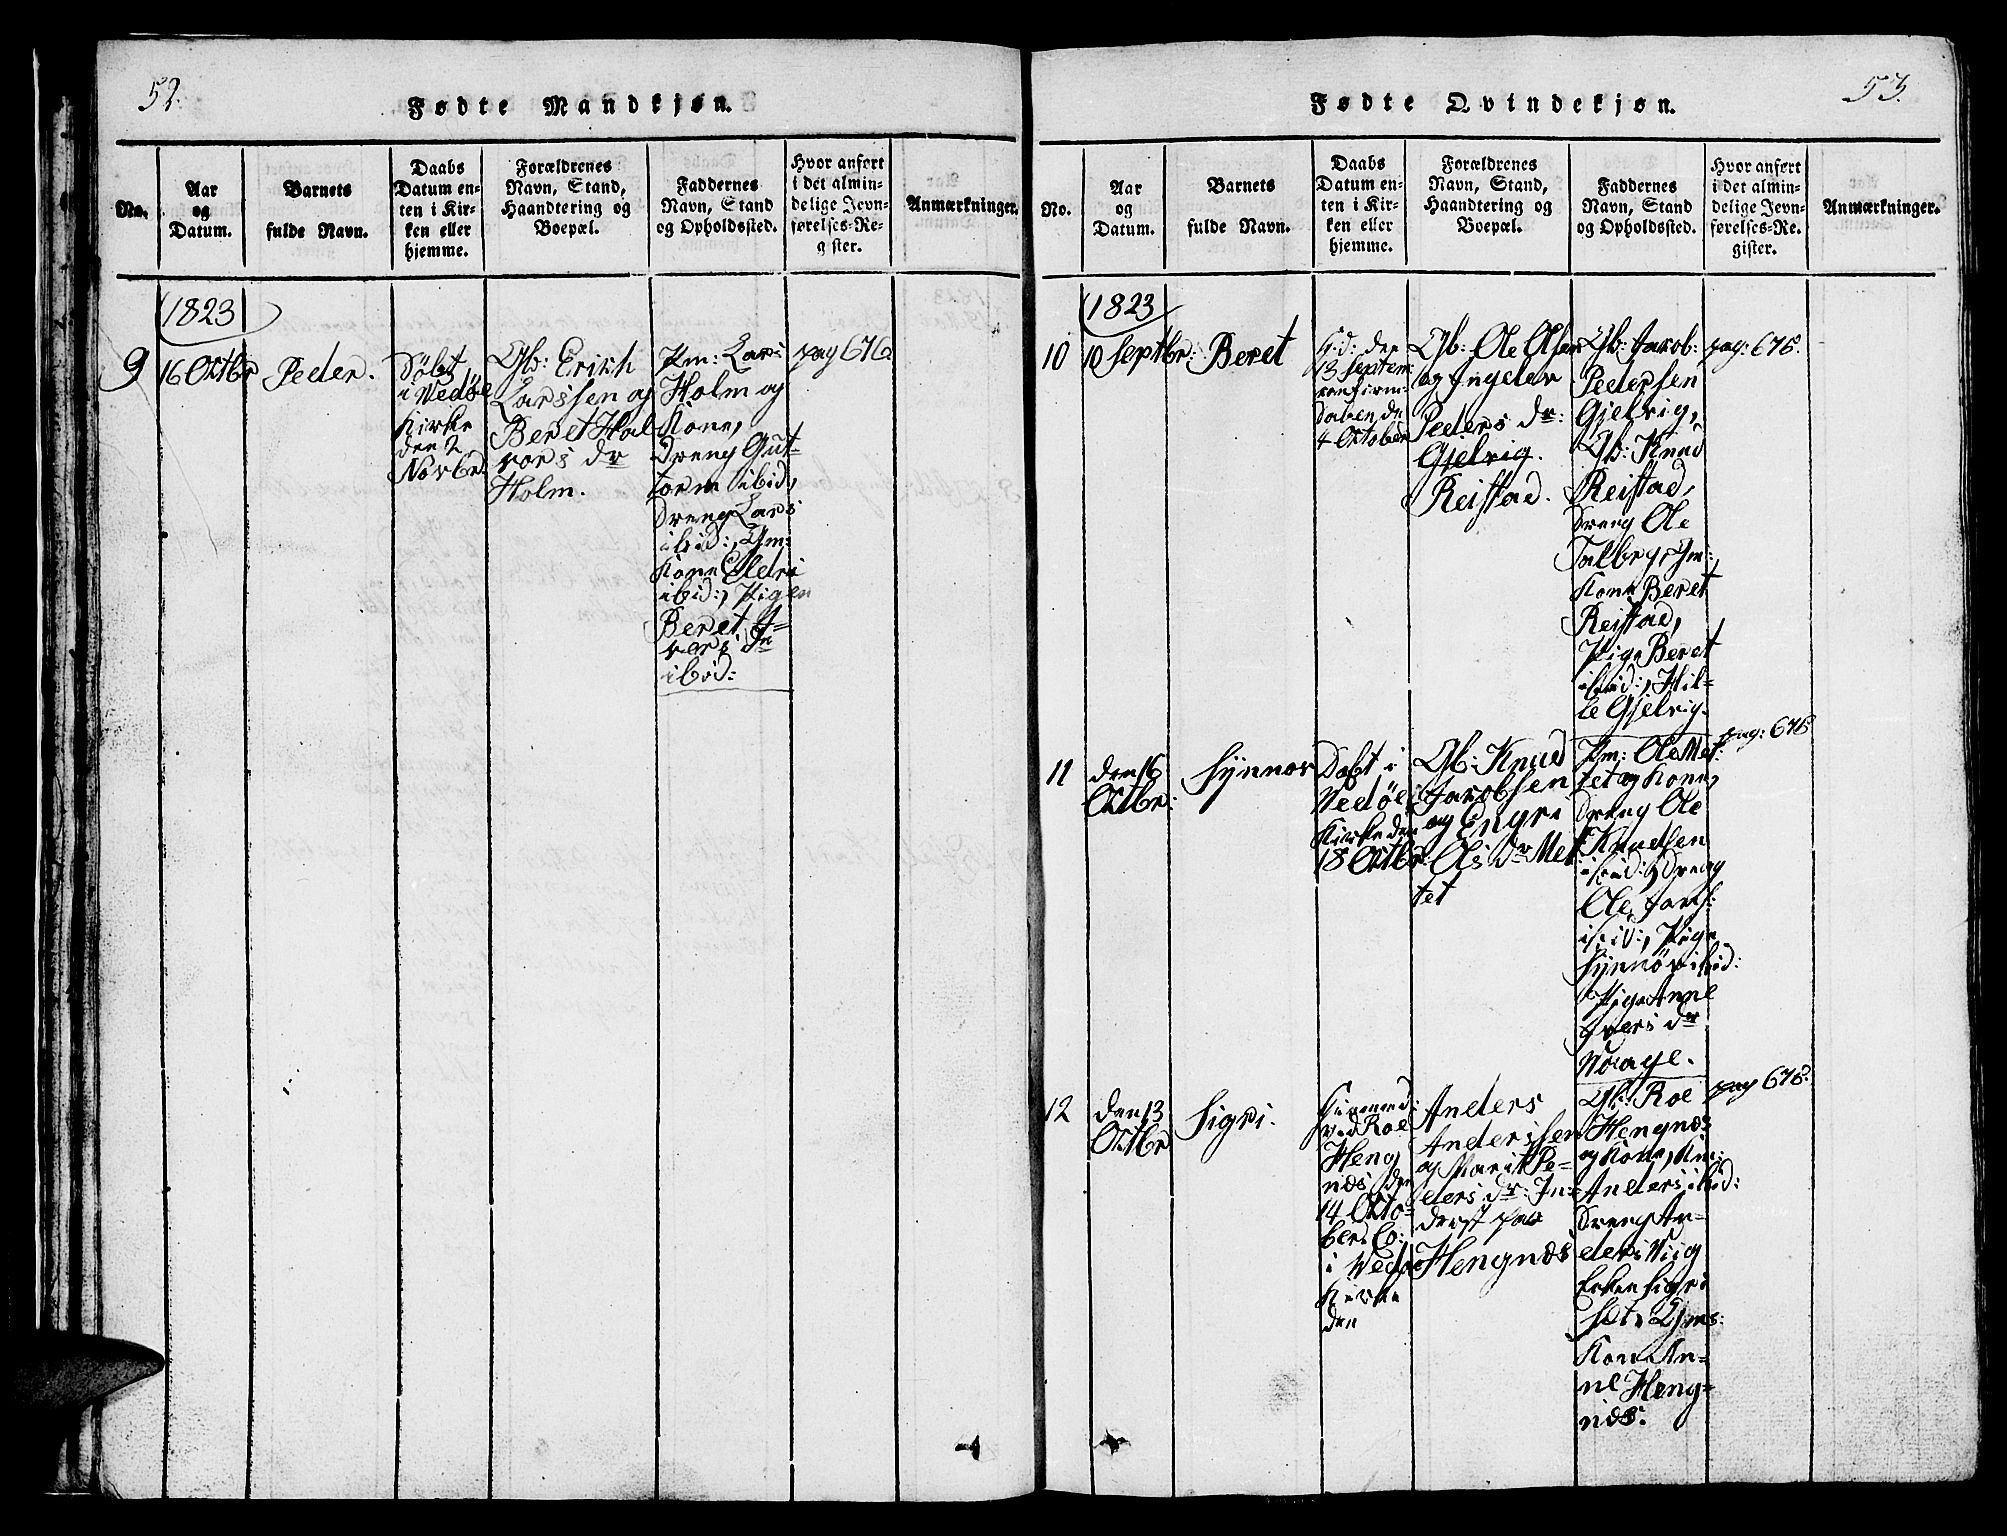 52.
Fødte Mandkjøn.
No.
Aar
og
Datum.
Barnets
fulde Navn.
Daabs
Datum en-
ten i Kir-
ken eller
hjemme.
Forældrenes
Navn, Stand,
Haandtering og
Boepæl.
Faddernes
Navn, Stand
og Opholdssted.
Hvor anført
i det almin-
delige Jevn-
førelses-Re-
gister.
Anmærkninger.
1823
9
16 Octbr
Peder.
Døbt
i Vedøe
Kirke
den 2
Novbr.
Gb: Erich
Larssen og
Beret Hal
vors dr
Holm.
Pm: Lars
Holm og
Kone,
Dreng Gut=
torm ibid,
Dreng Lars
ibid:, Gm:
Kone
ibid:, Pigen
Beret I=
vers dr
ibid:
pag 676
53.
Fødte Qvindekjøn.
No.
Aar
og
Datum.
Barnets
fulde Navn.
Daabs
Datum en-
ten i Kir-
ken eller
hjemme.
Forældrenes
Navn, Stand,
Haandtering og
Boepæl.
Faddernes
Navn, Stand
og Opholdssted.
Hvor anført
i det almin-
delige Jevn-
førelses-Re-
gister.
Anmærkninger.
1823
10
10 Septbr:
Beret
H: d: den
13 Septem
confirm:
Daben de
4 October
Gb: Ole Olsen
og Ingeber
Peders dr:
Gjelvig.
Reistad.
Gb: Jacob:
Pedersen
Gjelvig,
Gb: Knud
Reistad,
Dreng Ole
Gm:
Kone Beret
Reistad,
Pige Beret
ibid:, Hil=
le Gjelvig.
pag: 675.
11
den 16
Octbr:
Synnøv
Døbt i
Vedøe
Kirke den
18 Octbr:
Gb: Knud
Jacobsen
og Engri
Ols dr Met
tet
Pm: Ole Met
tet og Kone,
Dreng Ole
Knudsen
ibid:, Dreng
Ole Jacs:
ibid:, Pige
Synnøv ibid:
Pige Anne
Ivers dr
Vaage.
pag: 675
12
den 13
Octbr
Sigri.
Hjemmed:
ved Roe
Heng
næs den
14 Octo=
ber Co:
i Vedøe
Kirke
den
Anders
Anderssen
og Marit Pe=
ders dr: In=
derst paa
Hengnæs
Gb: Roe
Hengnæs
og Kone, Km:
Anders ibid:
Dreng An=
ders Viig
Enken Sigri
Gms:
Kone An=
ne Heng=
næs.
pag 675